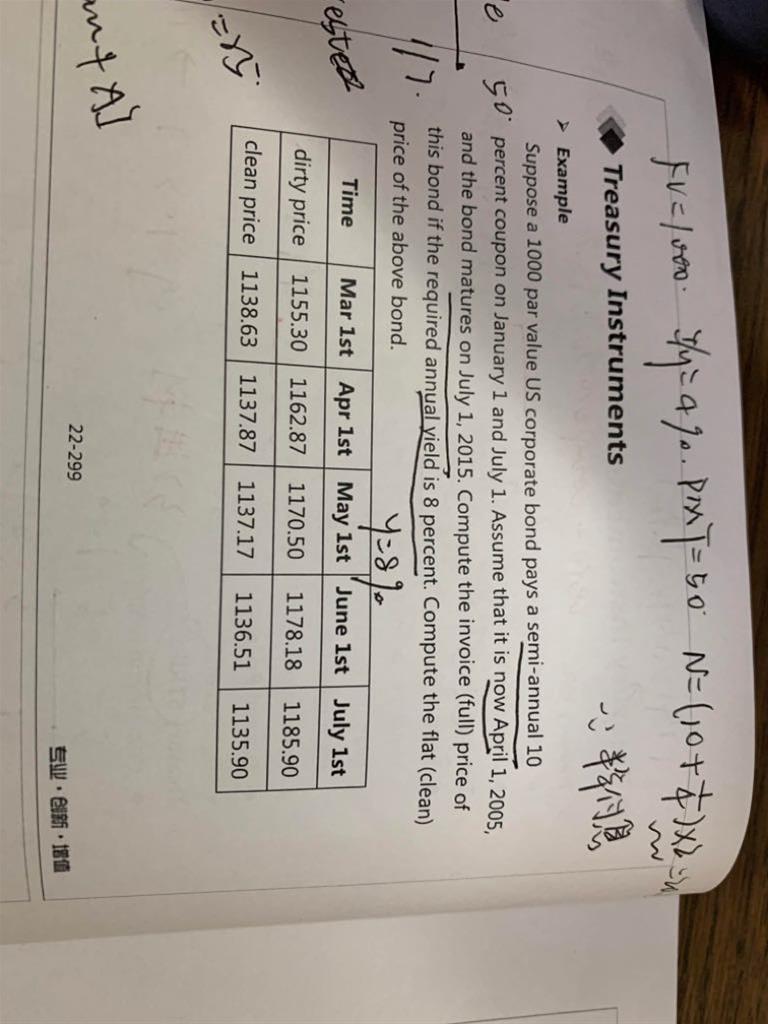 FV=1000. I/Y=4%. PMT=50 N=(10+1/4)×2
Treasury Instruments
➢ Example
Suppose a 1000 par value US corporate bond pays a semi-annual 10
50. percent coupon on January 1 and July 1. Assume that it is now April 1, 2005,
and the bond matures on July 1, 2015. Compute the invoice (full) price of
this bond if the required annual yield is 8 percent. Compute the flat (clean)
price of the above bond.
y=8%
Time Mar 1st Apr 1st May 1st June 1st July 1st
dirty price 1155.30 1162.87 1170.50 1178.18 1185.90
clean price 1138.63 1137.87 1137.17 1136.51 1135.90
+ AI
22-299
专业·创新·增值